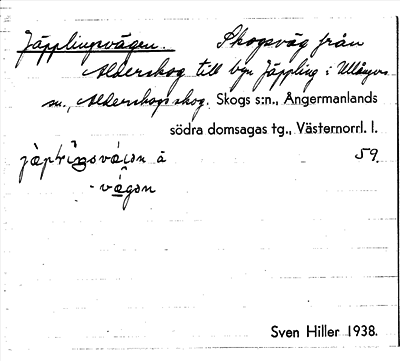 Jäpplingvägen. Skogsväg från
Alderskog till byn Jäppling i Ullångers
sn., Alderskogs skog. Skogs s:n., Ångermanlands
södra domsagas tg., Västernorrl. l.
59
Sven Hiller 1938.